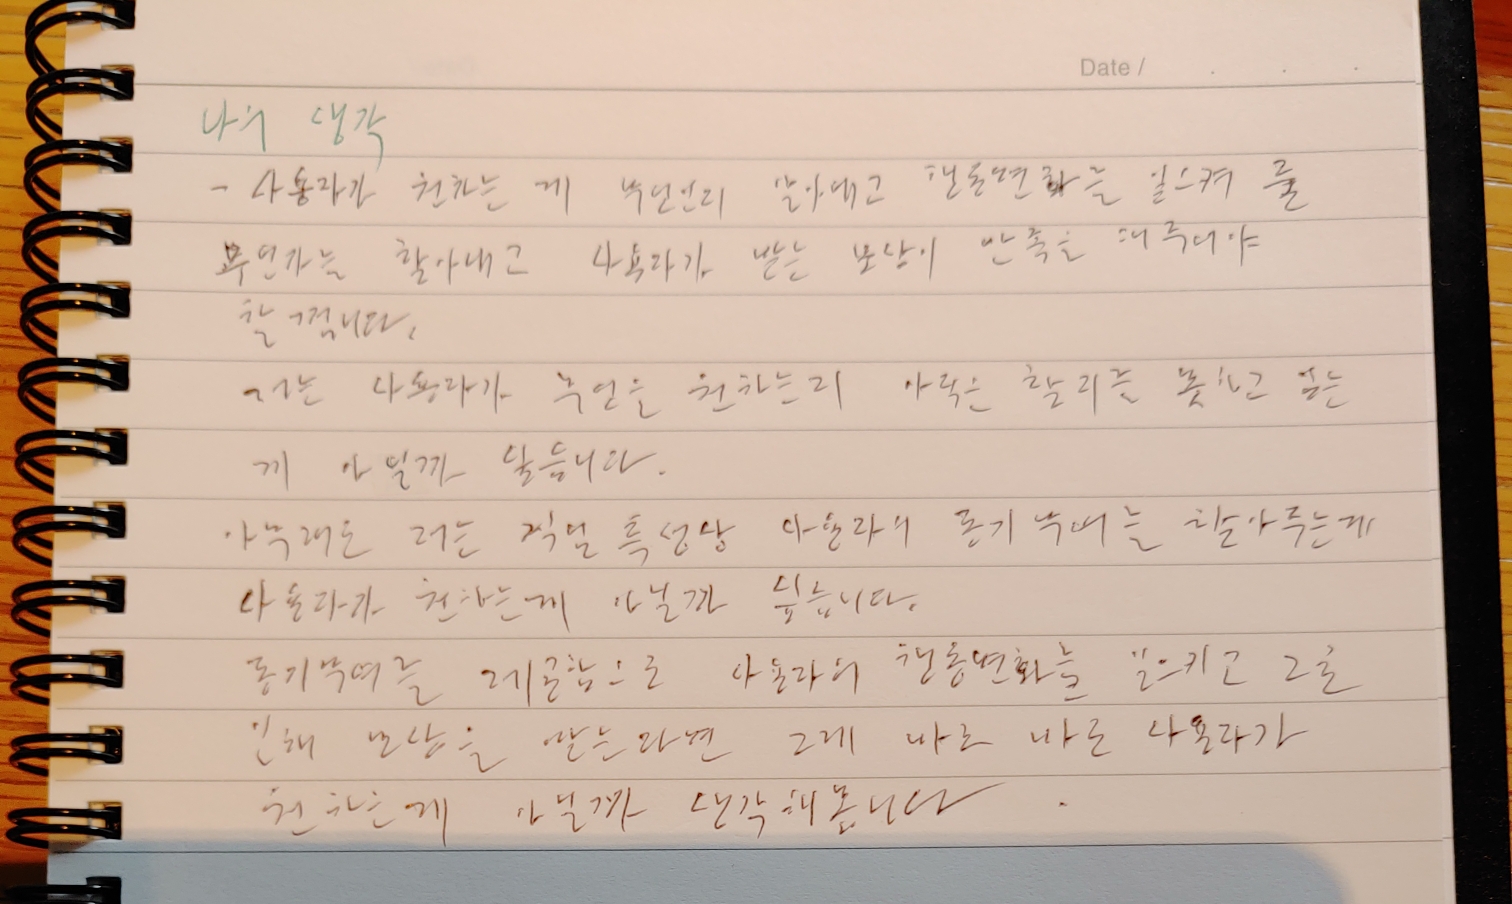 Date /
나의 생각
- 사용자가 원하는 게 무언인지 알아내고 행동변화를 일으켜 줄
무언가를 찾아내고 사용자가 받는 보상이 만족을 해주어야
할 껍니다.
저는 사용자가 무언을 원하는지 아직은 찾지를 못하고 있는
게 아닐까 싶습니다.
아무래도 저는 직업 특성상 사용자의 동기부여를 찾아주는게
사용자가 원하는게 아닐까 싶습니다.
동기부여를 제공함으로 사용자의 행동변화를 일으키고 그로
인해 보상을 받는다면 그게 바로 바로 사용자가
원하는게 아닐까 생각해봅니다.